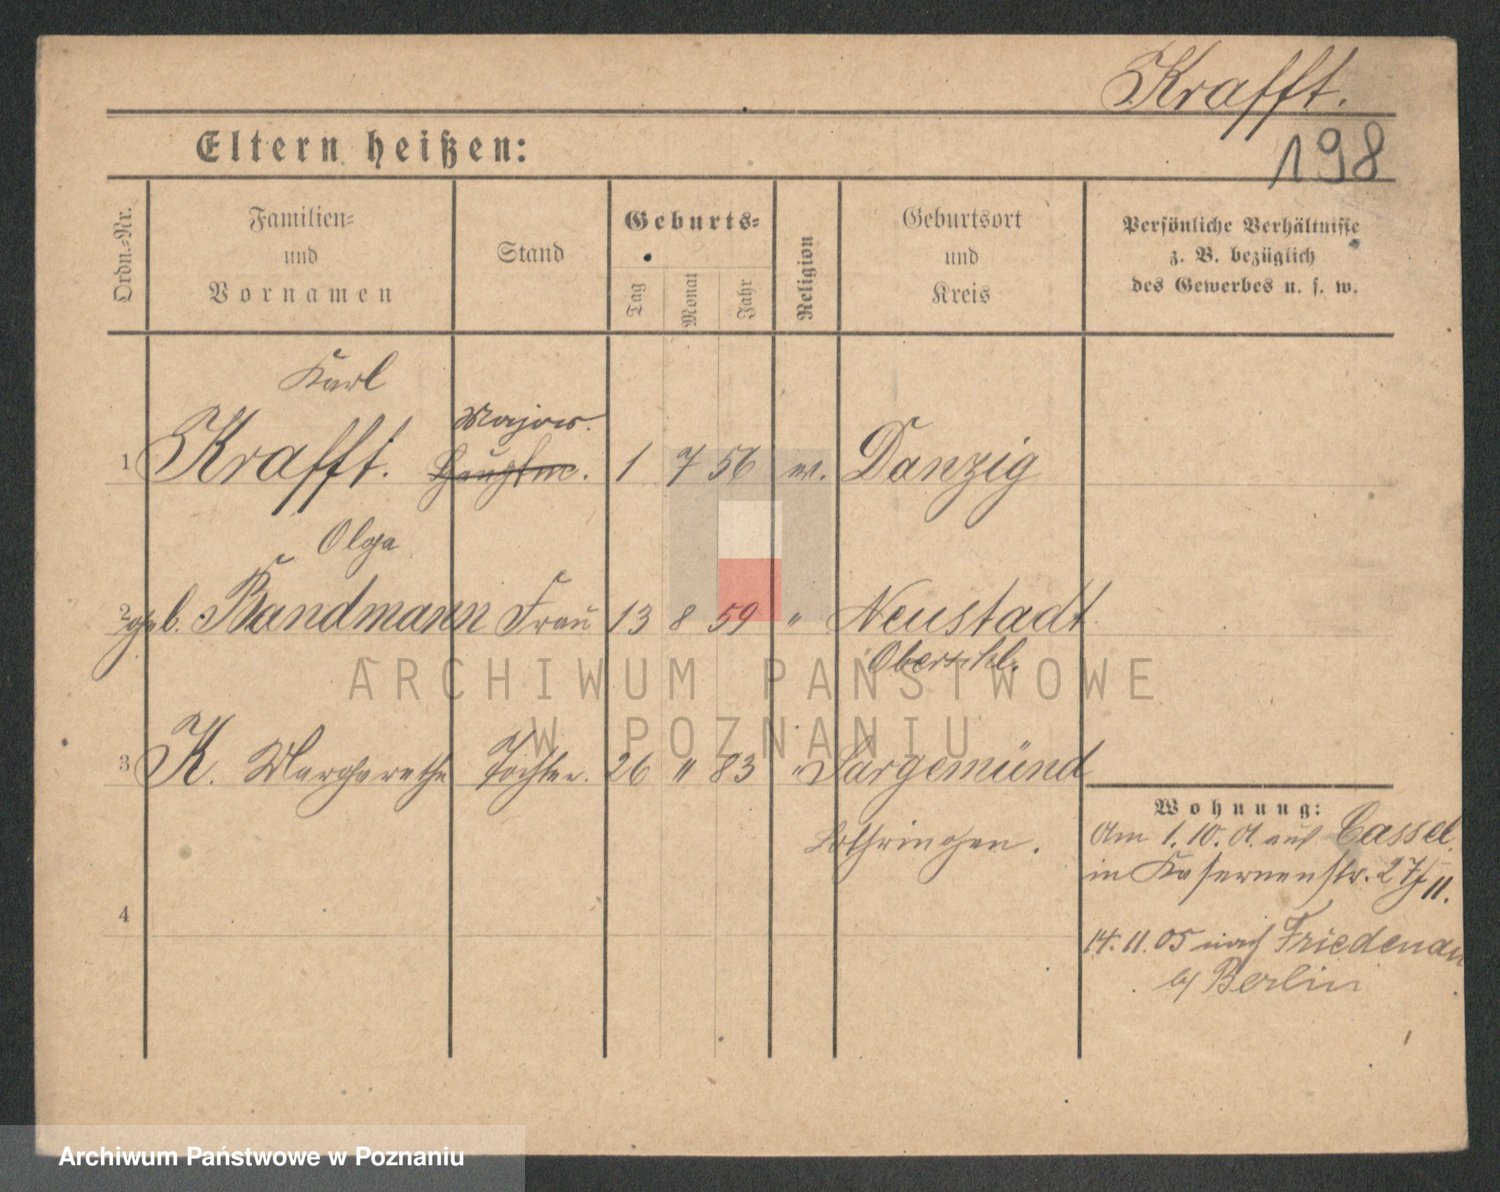 Krafft.
198
Eltern heißen:
Ordn.-Nr.
Familien- und Vornamen
Stand
Geburts-
Tag
Monat
Jahr
Religion
Geburtsort und Kreis
Persönliche Verhältnisse
z. B. bezüglich
des Gewerbes u. s. w.
Karl
Major.
1 Krafft. Hauptm. 1 7 56 ev. Danzig
Olga
2 geb. Bandmann Frau 13 8 59 " Neustadt
Oberschl.
3 K. Margarethe Tochter. 26 " 83 " Sargemünd
Lothringen.
Wohnung:
Am 1. 10. 01. aus Cassel.
in Kasernenstr. 27/II.
4
14. 11. 05 nach Friedenau
b/ Berlin
ARCHIWUM PAŃSTWOWE
W POZNANIU
Archiwum Państwowe w Poznaniu